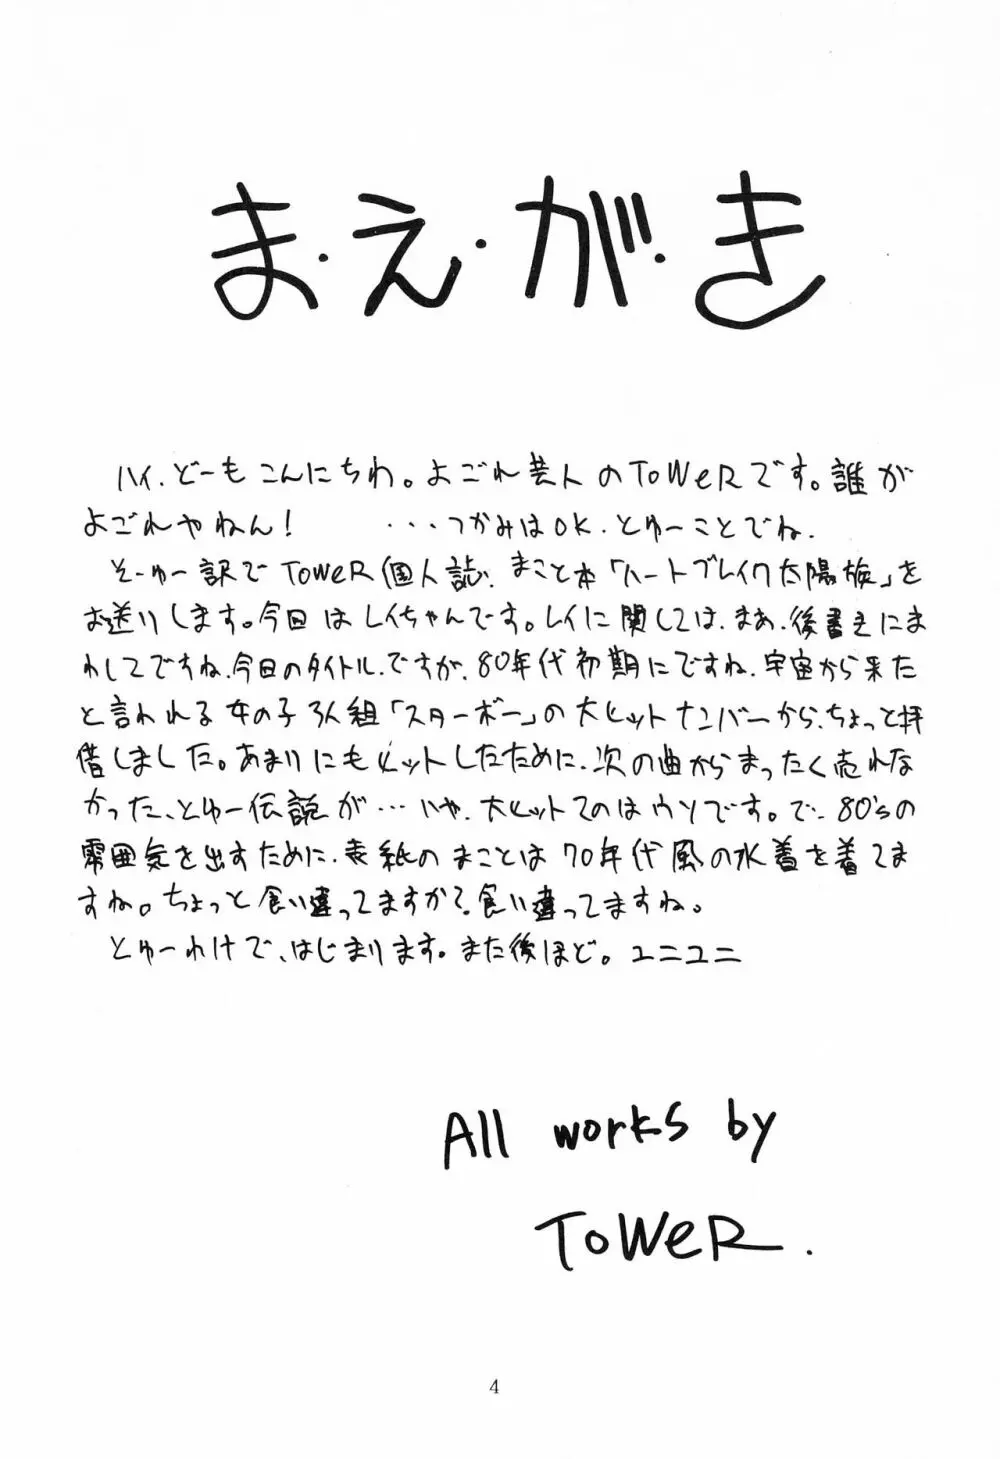 ま・え・が・き
ハイ、どーもこんにちわ。よごれ芸人のToWeRです。誰が
よごれやねん! ・・・つかみはOK、とゆーことでね、
そーゆー訳でToWeR個人誌、まこと本「ハートブレイク太陽族」を
お送りします。今回はレイちゃんです。レイに関しては、まぁ、後書きにま
わしてですね、今日のタイトル、ですが、80年代初期にですね、宇宙から来た
と言われる女の子3人組「スターボー」の大ヒットナンバーから、ちょっと拝
借しました。あまりにもヒットしたために、次の曲からまったく売れな
かった、とゆー伝説が・・・いや、大ヒットてのはウソです。で、80'sの
雰囲気を出すために、表紙のまことは70年代風の水着を着てま
すね。ちょっと食い違ってますか?食い違ってますね。
とゆーわけで、はじまります。また後ほど。ユニユニ
All works by
ToWeR.
4